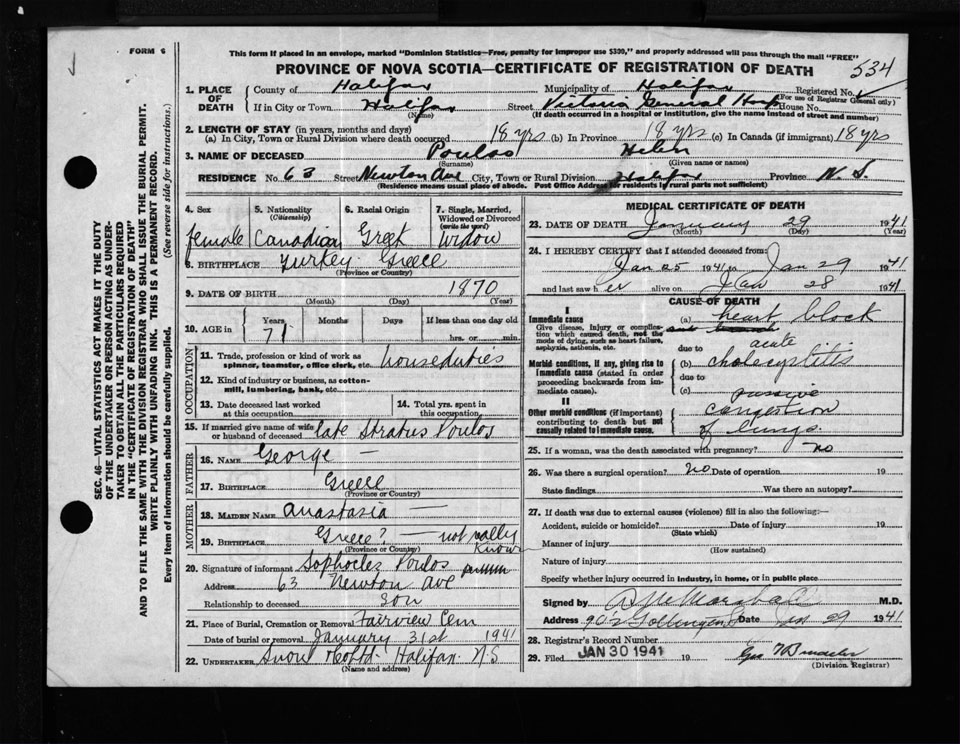 FORM 6
This form if placed in an envelope, marked "Dominion Statistics—Free, penalty for improper use $300," and properly addressed will pass through the mail "FREE"
PROVINCE OF NOVA SCOTIA—CERTIFICATE OF REGISTRATION OF DEATH
534
1. PLACE OF DEATH
County of Halifax Municipality of Halifax Registered No.
(For use of Registrar General only)
If in City or Town Halifax Street Victoria General Hosp House No.
(Name) (If death occurred in a hospital or institution, give the name instead of street and number)
2. LENGTH OF STAY (in years, months and days)
(a) In City, Town or Rural Division where death occurred 18 yrs (b) In Province 18 yrs (c) In Canada (if immigrant) 18 yrs
3. NAME OF DECEASED Poulos Helen
(Surname) (Given name or names)
RESIDENCE No. 63 Street Newton Ave City, Town or Rural Division Halifax Province N.S.
(Residence means usual place of abode. Post Office Address for residents in rural parts not sufficient)
SEC. 46—VITAL STATISTICS ACT MAKES IT THE DUTY
OF THE UNDERTAKER OR PERSON ACTING AS UNDER-
TAKER TO OBTAIN ALL THE PARTICULARS REQUIRED
IN THE "CERTIFICATE OF REGISTRATION OF DEATH"
AND TO FILE THE SAME WITH THE DIVISION REGISTRAR WHO SHALL ISSUE THE BURIAL PERMIT.
WRITE PLAINLY WITH UNFADING INK. THIS IS A PERMANENT RECORD.
Every item of information should be carefully supplied. (See reverse side for instructions.)
4. Sex
female
5. Nationality
(Citizenship)
Canadian
6. Racial Origin
Greek
7. Single, Married,
Widowed or Divorced
(write the word)
Widow
8. BIRTHPLACE Turkey Greece
(Province or Country)
9. DATE OF BIRTH 1870
(Month) (Day) (Year)
10. AGE in Years Months Days If less than one day old
71 hrs. or min.
OCCUPATION
11. Trade, profession or kind of work as
spinner, teamster, office clerk, etc. houseduties
12. Kind of industry or business, as cotton-
mill, lumbering, bank, etc.
13. Date deceased last worked
at this occupation
14. Total yrs. spent in
this occupation
15. If married give name of wife
or husband of deceased late Stratus Poulos
FATHER
16. NAME George —
17. BIRTHPLACE Greece
(Province or Country)
MOTHER
18. MAIDEN NAME Anastasia —
19. BIRTHPLACE Greece? — not really
(Province or Country) known
20. Signature of informant Sophocles Poulos
Address 63 Newton Ave
Relationship to deceased son
21. Place of Burial, Cremation or Removal Fairview Cem
Date of burial or removal January 31st 1941
22. UNDERTAKER Snow & Co Ltd. Halifax N.S
(Name and address)
MEDICAL CERTIFICATE OF DEATH
23. DATE OF DEATH January 29 1941
(Month) (Day) (Year)
24. I HEREBY CERTIFY that I attended deceased from:
Jan 25 1941 to Jan 29 1941
and last saw h er alive on Jan 28 1941
CAUSE OF DEATH
I
Immediate cause (a) heart block
Give disease, injury or complica-
tion which caused death, not the
mode of dying, such as heart failure,
asphyxia, asthenia, etc.
due to acute
Morbid conditions, if any, giving rise to
immediate cause (stated in order
proceeding backwards from im-
mediate cause).
(b) cholecystitis
due to
(c)
II
Other morbid conditions (if important)
contributing to death but not
causally related to immediate cause.
passive
congestion
of lungs.
25. If a woman, was the death associated with pregnancy? no
26. Was there a surgical operation? no Date of operation 19
State findings Was there an autopsy?
27. If death was due to external causes (violence) fill in also the following:—
Accident, suicide or homicide? Date of injury 19
(State which)
Manner of injury
(How sustained)
Nature of injury
Specify whether injury occurred in industry, in home, or in public place
Signed by M.D.
Address Date Jan 29 1941
28. Registrar's Record Number
29. Filed JAN 30 1941 19
(Division Registrar)